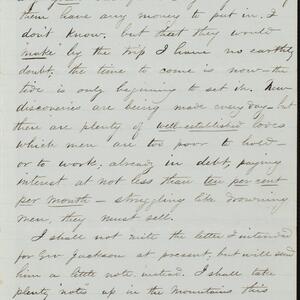 them have any money to put in. I
don't know, but that they would
"make" by the trip I have no earthly
doubt. the time to come is now - the
tide is only beginning to set in. New
discoveries are being made every day - but
there are plenty of well-established lodes
which men are too poor to hold -
or to work. already in debt, paying
interest at not less than ten per cent
per month - struggling like drowning
men, they must sell.
I shall not write the letter I intended
for Gov Jackson at present, but will send
him a little note instead. I shall take
plenty "notes" up in the Mountains this